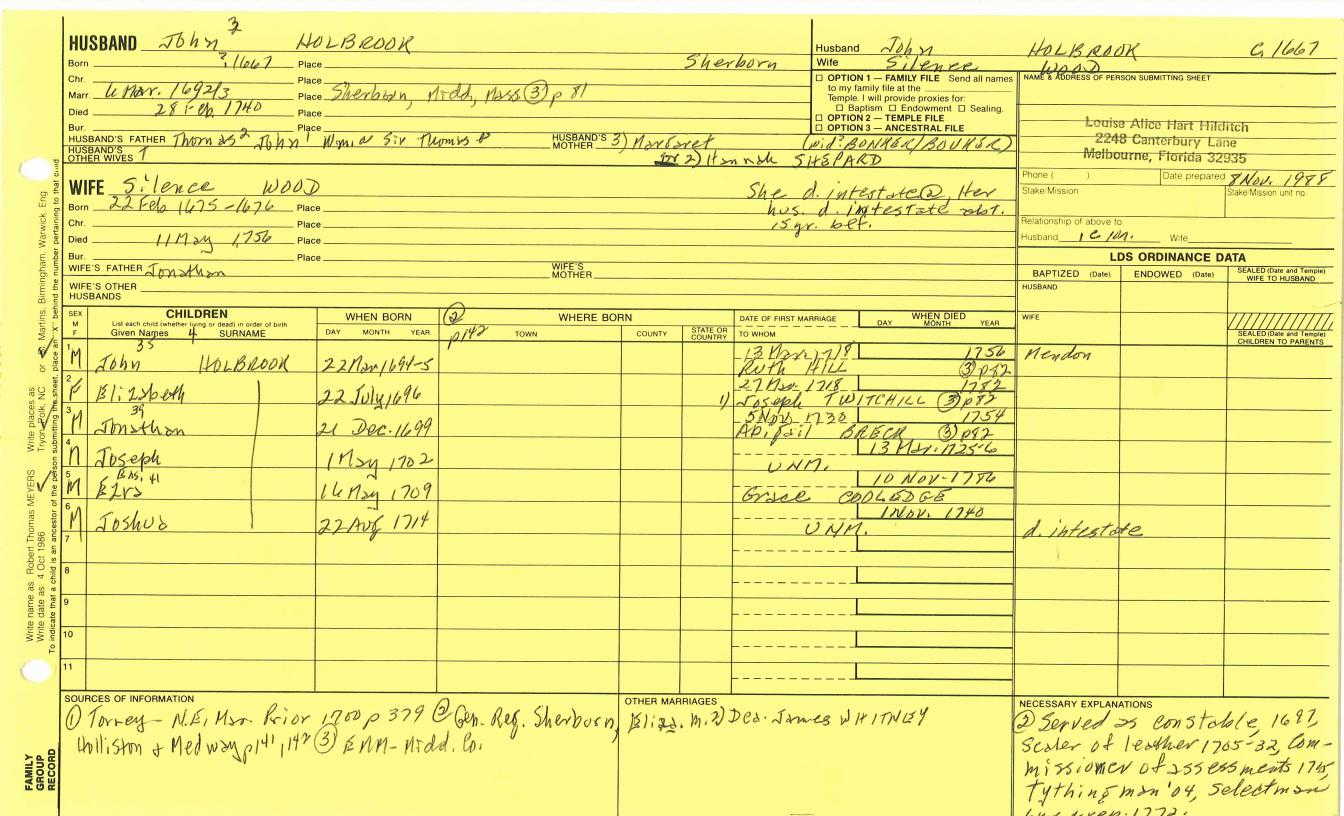 HUSBAND John 3 HOLBROOK
Born ?, 1667 Place Sherborn
Chr. Place
Marr. 6 Mar. 1692/3 Place Sherborn, Midd, Mass (3) p 81
Died 28 Feb. 1740 Place
Bur. Place
HUSBAND'S FATHER Thomas 2 John 1 Wm Sir Thomas
HUSBAND'S MOTHER 3) Margaret (wid? BONKER/BOUKER)
HUSBAND'S OTHER WIVES
or 2) Hannah SHEPARD
WIFE Silence WOOD
Born 22 Feb 1675-1676 Place
Chr. Place
Died 11 May 1,756 Place
Bur. Place
She d. intestate (2), Her
hus. d. intestate abt.
15 yr. bef.
WIFE'S FATHER Jonathan
WIFE'S MOTHER
WIFE'S OTHER HUSBANDS
Husband John HOLBROOK C, 1667
Wife Silence WOOD
OPTION 1 — FAMILY FILE Send all names
to my family file at the
Temple. I will provide proxies for:
Baptism Endowment Sealing.
OPTION 2 — TEMPLE FILE
OPTION 3 — ANCESTRAL FILE
NAME & ADDRESS OF PERSON SUBMITTING SHEET
Louise Alice Hart Hilditch
2248 Canterbury Lane
Melbourne, Florida 32935
Phone ( ) Date prepared 8 Nov. 1988
Stake/Mission Stake/Mission unit no.
Relationship of above to:
Husband 1 C 1 M. Wife
LDS ORDINANCE DATA
BAPTIZED (Date) ENDOWED (Date) SEALED (Date and Temple) WIFE TO HUSBAND
HUSBAND
WIFE
SEALED (Date and Temple) CHILDREN TO PARENTS
SEX M F
CHILDREN
List each child (whether living or dead) in order of birth
Given Names 4 SURNAME
WHEN BORN
DAY MONTH YEAR
(2) p142
WHERE BORN
TOWN COUNTY STATE OR COUNTRY
DATE OF FIRST MARRIAGE
TO WHOM
WHEN DIED
DAY MONTH YEAR
1 M 35 John HOLBROOK 22 Mar 1694-5 13 Mar. 1718 1756 Mendon
Ruth HILL (3) p82
2 F Elizabeth 22 July 1696 27 Mar 1718 1782
1) Joseph TWITCHILL (3) p82
3 M 39 Jonathan 21 Dec. 1699 5 Nov. 1730 1754
Abigail BRECK (3) p82
4 M Joseph 1 May 1702 13 Mar. 1725-6
UNM.
5 M Ens. 41 16 May 1709 10 NOV. 1786
Grace COOLEDGE
6 M Joshua 22 Aug 1714 1 Nov. 1740
UNM. d. intestate
7
8
9
10
11
SOURCES OF INFORMATION
(1) Torrey - N.E. Mar. Prior 1700 p 379 (2) Gen. Reg. Sherborn,
Holliston & Medway p141, 142 (3) EMM - Midd. Co.
OTHER MARRIAGES
Eliza. m. 2) Dea. James WHITNEY
NECESSARY EXPLANATIONS
(2) Served as constable, 1697,
sealer of leather 1705-32, Com-
missioner of assessments 1715,
Tythingman '04, Selectman
Write name as: Robert Thomas MEYERS Write places as: Tryon, Polk, NC or St. Martins, Birmingham, Warwick, Eng
Write date as: 4 Oct 1986
To indicate that a child is an ancestor of the person submitting the sheet, place an "X" behind the number pertaining to that child
FAMILY
GROUP
RECORD